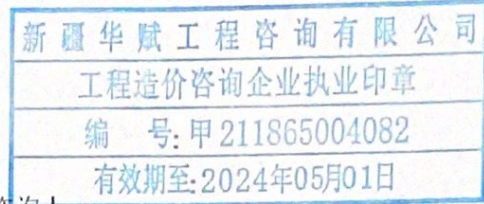 新疆华赋工程咨询有限公司
工程造价咨询企业执业印章
编 号:甲211865004082
有效期至:2024年05月01日